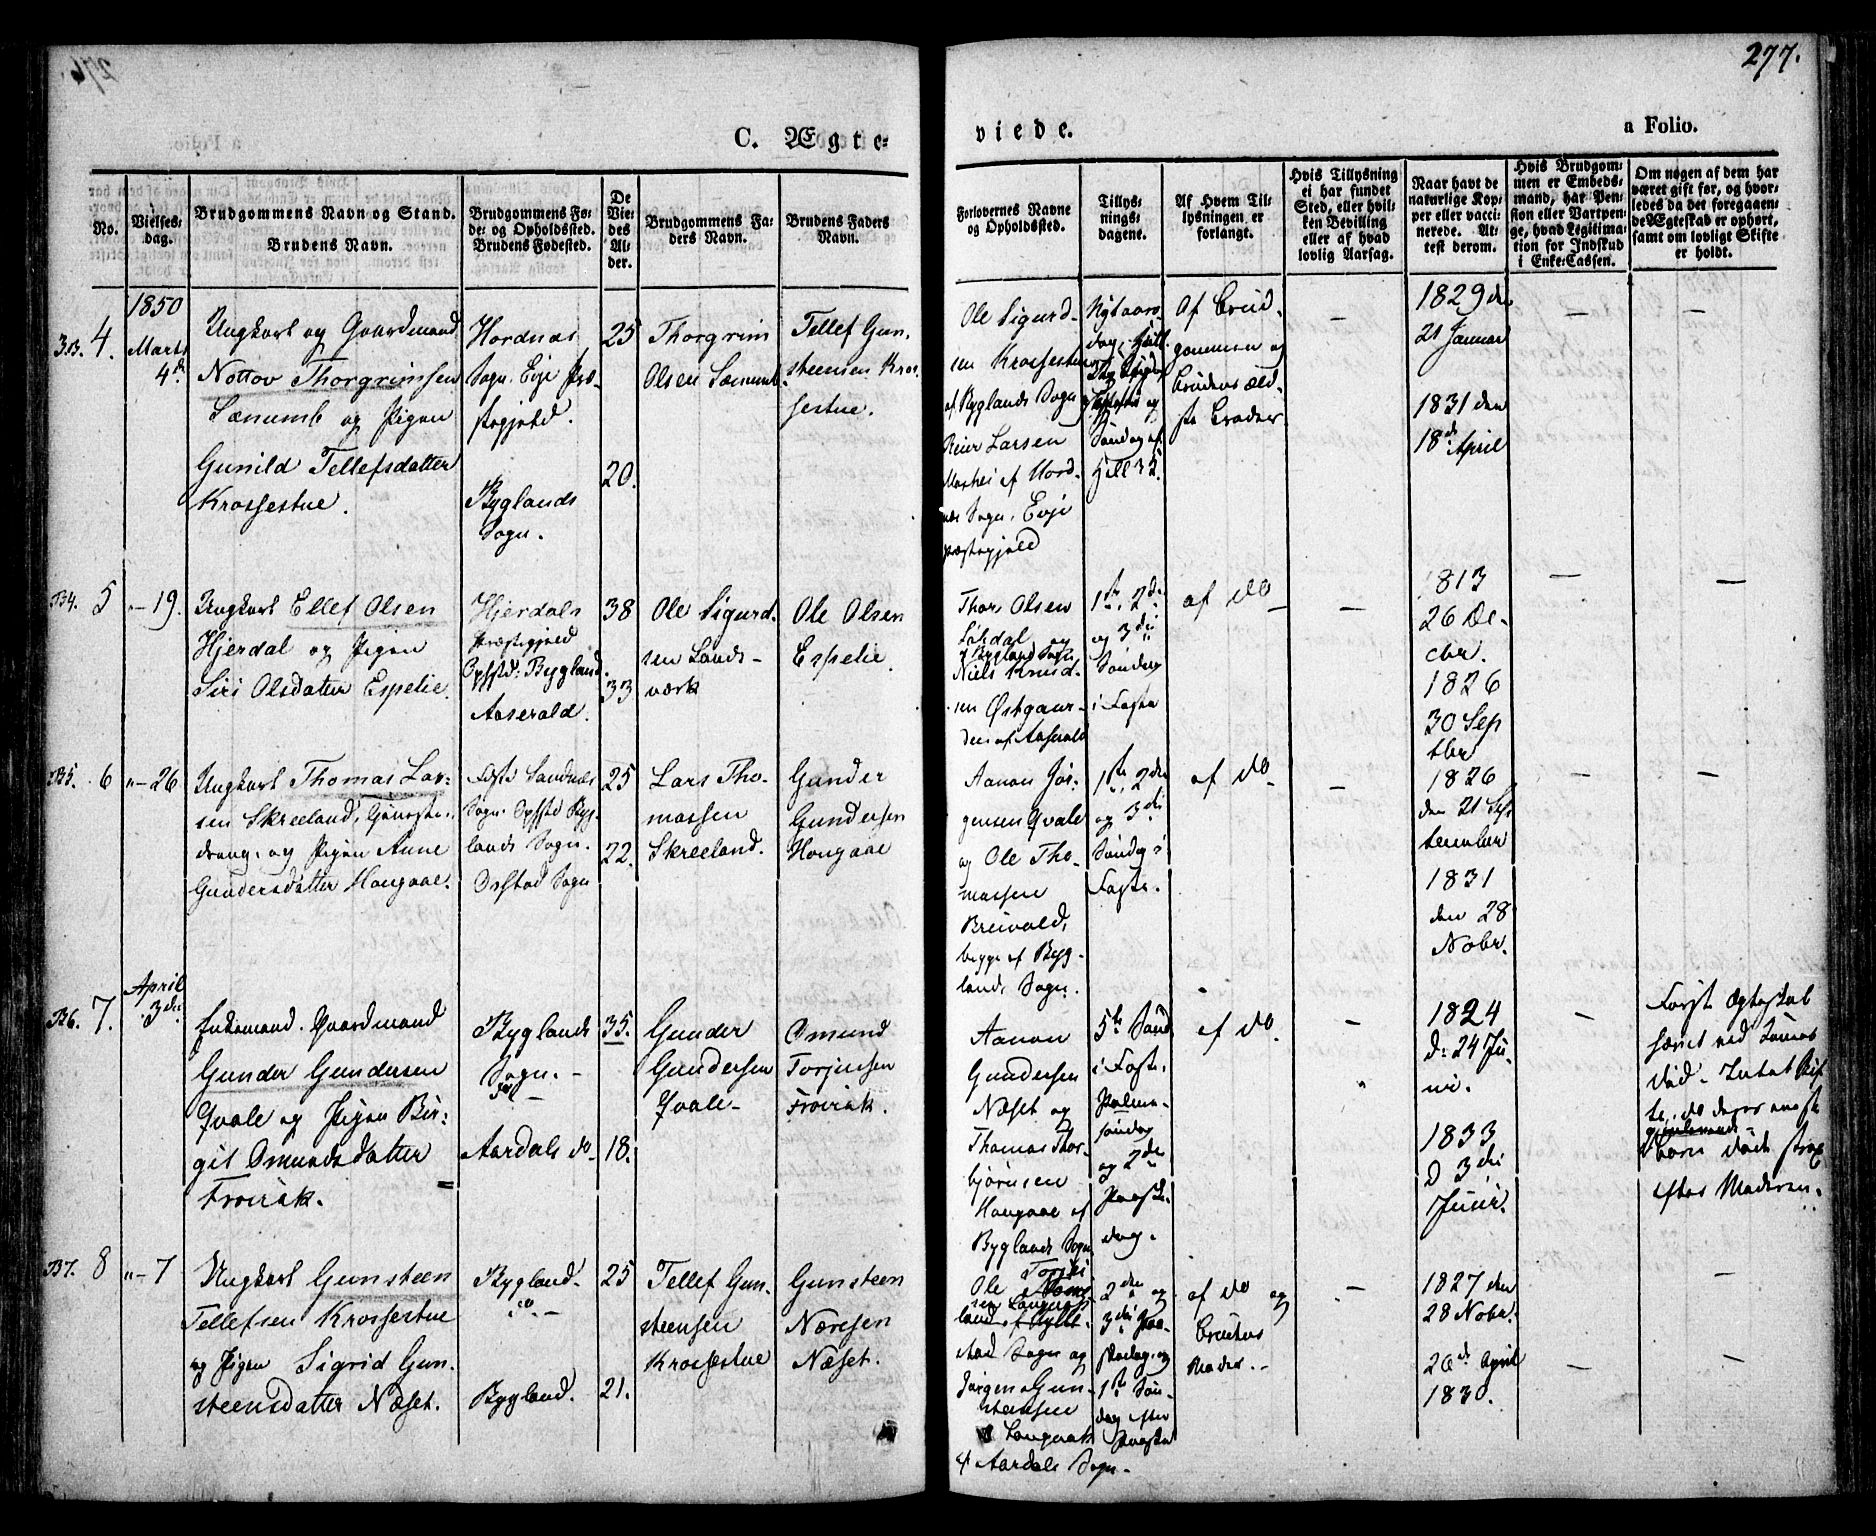 277.
C. Ægte-
viede.
a Folio.
No.
Vielses-
dag.
Brudgommens Navn og Stand.
Brudens Navn.
Brudgommens Fø-
de- og Opholdssted.
Brudens Fødested.
De
Vie-
des
Al-
der.
Brudgommens Fa-
ders Navn.
Brudens Faders
Navn.
Forlovernes Navne
og Opholdssted.
Tillys-
nings-
dagene.
Af Hvem Til-
lysningen er
forlangt.
Hvis Tillysning
ei har fundet
Sted, eller hvil-
ken Bevilling
eller af hvad
lovlig Aarsag.
Naar havt de
naturlige Kop-
per eller vacci-
nerede. At-
test derom.
Hvis Brudgom-
men er Embeds-
mand, har Pen-
sion eller Vartpen-
ge, hvad Legitima-
tion for Indskud
i Enke-Cassen.
Om nogen af dem har
været gift før, og hvor-
ledes da det foregaaen-
de Ægteskab er ophørt,
samt om lovligt Skifte
er holdt.
4.
1850
Marts
4de
Ungkarl og Gaardmand
Nottov Thorgrimsen
Senumb og Pigen
Gunild Tellefsdatter
Krossestue.
Hordnæs
Sogn, Evje Præ-
stegjeld.
Byglands
Sogn.
25
20.
Thorgrim
Olsen Senumb.
Tellef Gun-
steensen Kros-
sestue.
Ole Sigurd-
sen Krossestue
af Byglands Sogn
Reier Larsen
af Hord-
næs Sogn, Evje
Præstegjeld
Nytaars-
dag,
Søndag ef.
Af Brud-
gommen og
Brudens æld-
ste Broder
–
1829 den
21 Januar
1831 den
18de April
–
–
B4. 5
"– 19.
Ungkarl Ellef Olsen
Hjerdal og Pigen
Siri Olsdatter Espelie.
Hjerdals
Præstegjeld
Opstd: Bygland.
Aaserald.
38
33
Ole Sigurd-
sen Lands-
værk
Ole Olsen
Espelie.
Thor Olsen
og
af Bygland Sogn
Niels Knud-
sen Østgaar-
den af Aaserald
1ste, 2den
og 3die
Søndag
i Faste
af do
–
1813
26 De-
cbr.
1826
30 Sep
tbr
–
–
B5. 6
"– 26
Ungkarl Thomas Lar-
sen Skreeland, Tjeneste-
dreng, og Pigen Anne
Gundersdatter Hougaae.
Føste Sandnæs
Sogn. Opstd Byg-
lands Sogn.
Orstad Sogn
25
22.
Lars Tho-
massen
Skreeland.
Gunder
Gundersen
Hougaae
Aanon Jør-
gensen Qvale
og Ole Tho-
massen
Breivald,
begge af Byg-
lands Sogn.
1ste, 2den
og 3die
Søndag i
Faste.
af do
–
1826
den 21 Sep
tember
1831
den 28
Nobr.
–
–
B6. 7.
April
3die
Enkemand. Gaardmand
Gunder Gundersen
Qvale og Pigen Bir-
git Omundsdatter
Froirak.
Byglands
Sogn. –
Aardals do
35.
18.
Gunder
Gundersen
Qvale –
Omund
Torjussen
Froirak.
Aanon
Gundersen
Næset og
Thomas Thor-
bjørnsen
Hougaae af
Byglands Sogn
5te Sønd
i Faste,
Palme-
søndag
og 2den
Paaske-
dag.
af do
–
1824
d: 24 Ju-
ni.
1833
d 3die
Juni.
–
Første Ægteskab
hævet ved Konens
Død – Intet Skif-
te, do deres eneste
Barn døde strax
efter Moderen.
B7. 8
"– 7
Ungkarl Gunsteen
Tellefsen Krossestue
og Pigen Sigrid Gun-
steensdatter Næset.
Bygland –
Bygland.
25
21.
Tellef Gun-
steensen
Krossestue
Gunsteen
Næresen
Næset.
Ole
land af Hylle-
stad Sogn og
Jørgen Gun-
steensen
Langerak
af Aardals Sogn –
2den og
3die Paa-
skedag og
1ste Søn-
dag efter
Paaske
af do og
Brudens
Moder. –
1827 den
28 Nobr.
26de April
1830.
–
–